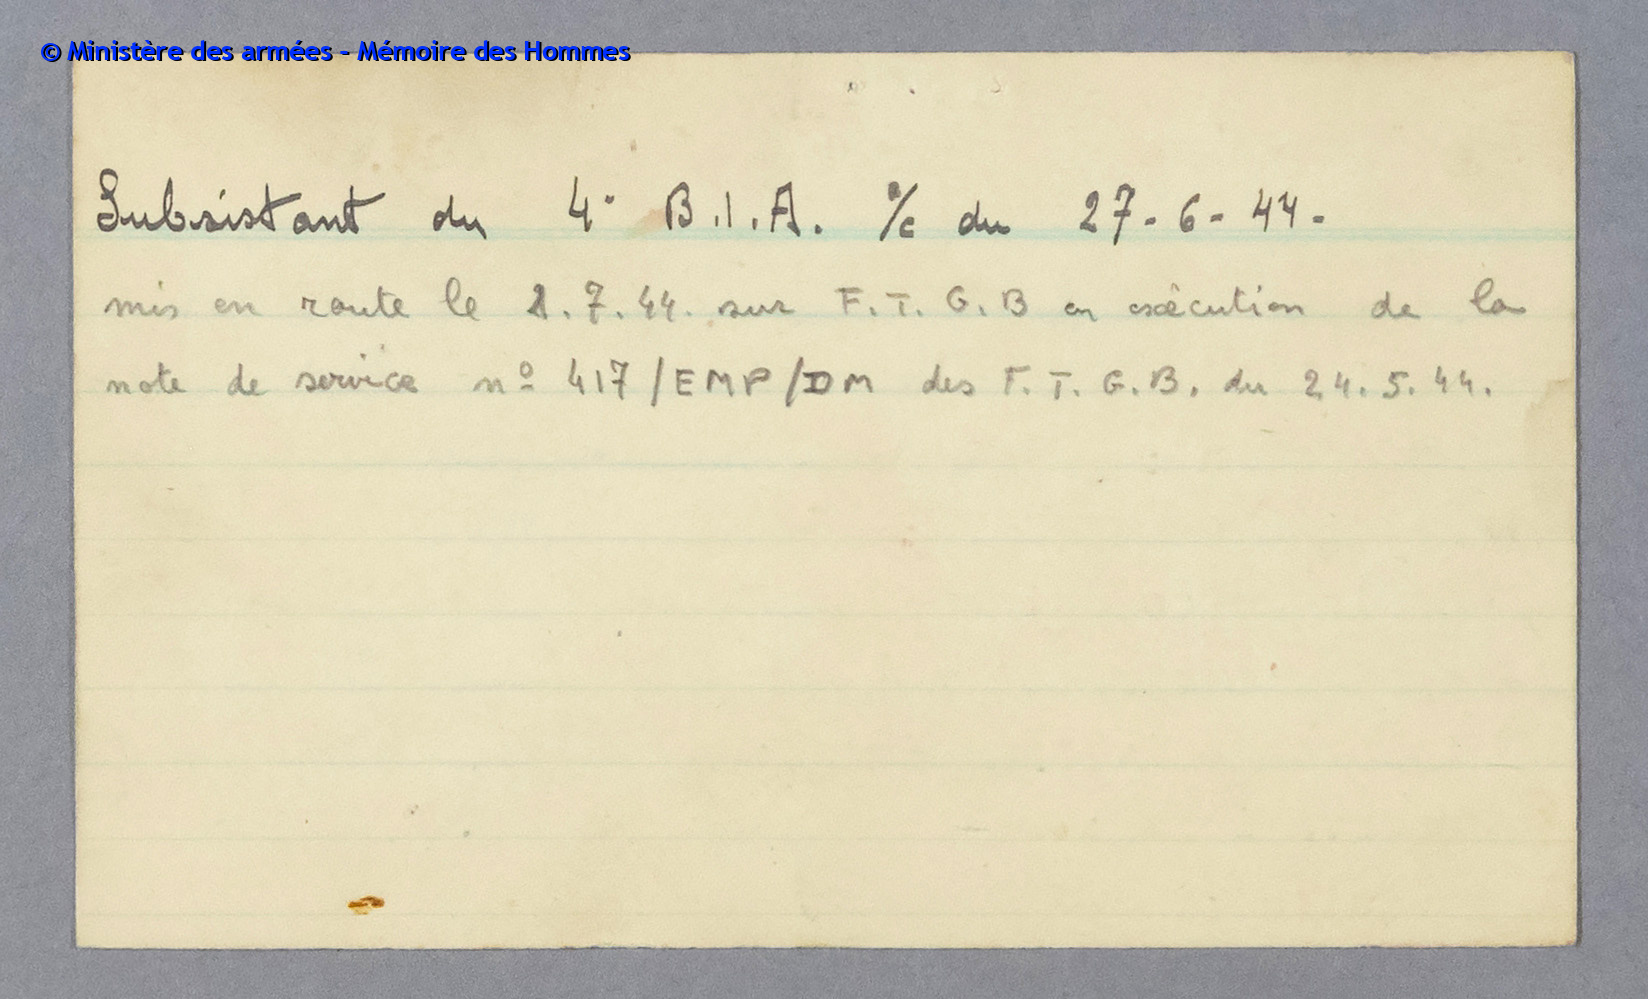 © Ministère des armées - Mémoire des Hommes
Subsistant du 4° B.I.A. %c du 27-6-44-
mis en route le 1.7.44. sur F.T.G.B en exécution de la
note de service nº 417/EMP/DM des F.T.G.B. du 24.5.44.